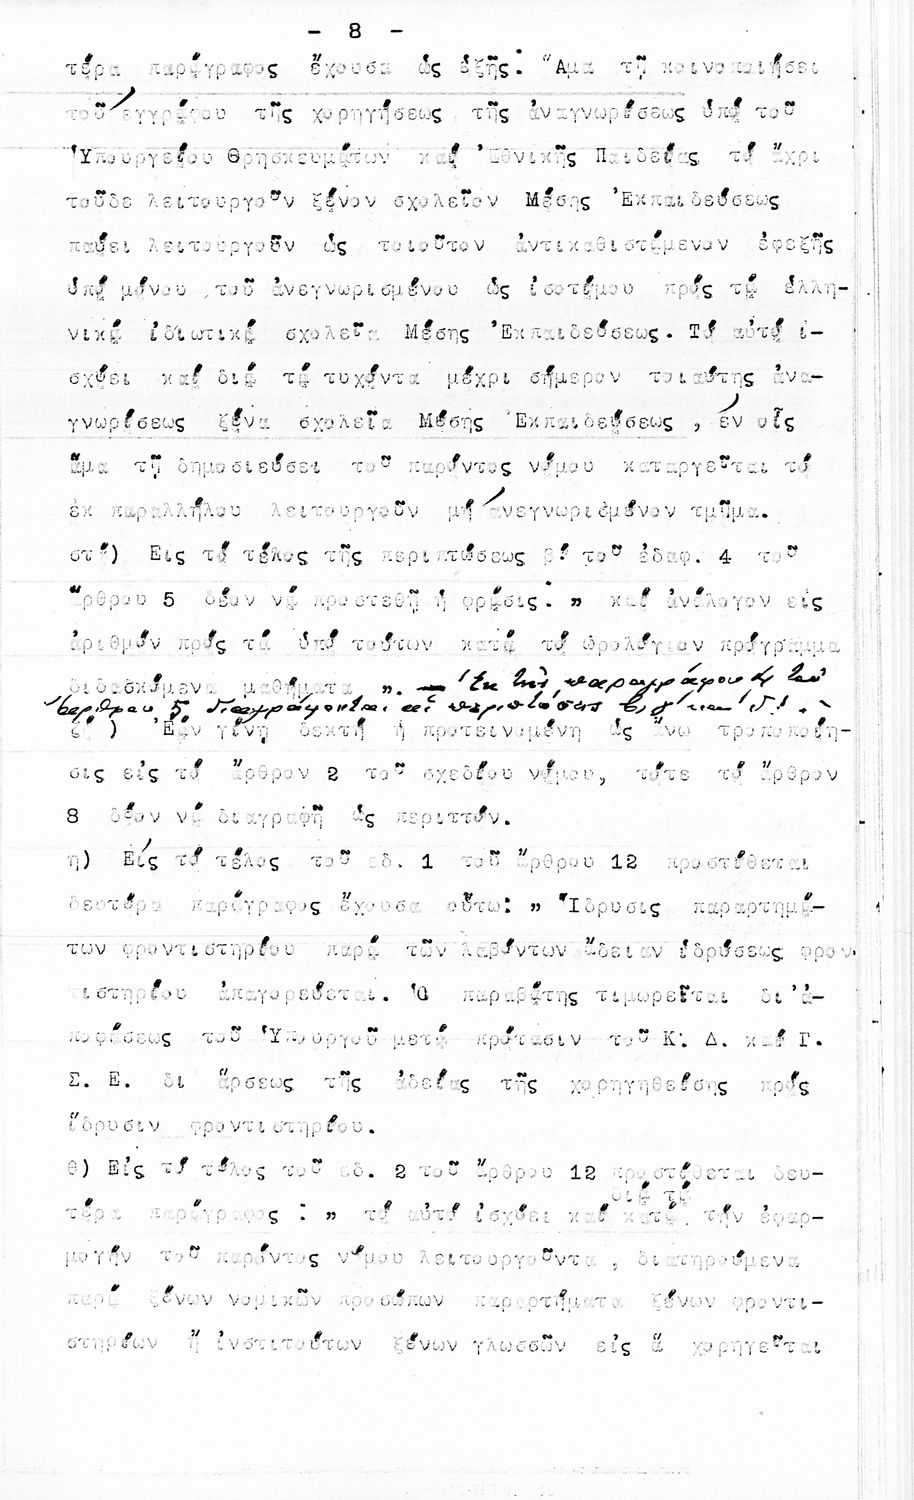 - 8 -
τέρα παράγραφος ἔχουσα ὡς ἑξῆς: "Αμα τῇ κοινοποιήσει
τοῦ ἐγγράφου τῆς χορηγήσεως τῆς ἀναγνωρίσεως ὑπό τοῦ
Ὑπουργείου Θρησκευμάτων καί Ἐθνικῆς Παιδείας τό ἄχρι
τοῦδε λειτουργοῦν ξένον σχολεῖον Μέσης Ἐκπαιδεύσεως
παύει λειτουργοῦν ὡς τοιοῦτον ἀντικαθιστάμενον ἐφεξῆς
ὑπό μόνου τοῦ ἀνεγνωρισμένου ὡς ἰσοτίμου πρός τά ἑλλη-
νικά ἰδιωτικά σχολεῖα Μέσης Ἐκπαιδεύσεως. Τό αὐτό ἰ-
σχύει καί διά τά τυχόντα μέχρι σήμερον τοιαύτης ἀνα-
γνωρίσεως ξένα σχολεῖα Μέσης Ἐκπαιδεύσεως , ἐν οἷς
ἅμα τῇ δημοσιεύσει τοῦ παρόντος νόμου καταργεῖται τό
ἐκ παραλλήλου λειτουργοῦν μή ἀνεγνωρισμένον τμῆμα.
στ΄) Εἰς τό τέλος τῆς περιπτώσεως β΄ τοῦ ἐδαφ. 4 τοῦ
ἄρθρου 5 δέον νά προστεθῇ ἡ φράσις: „ καί ἀνάλογον εἰς
ἀριθμόν πρός τά ὑπό τούτων κατά τό ὡρολόγιον πρόγραμμα
διδασκόμενα μαθήματα „. — Ἐκ τῆς παραγράφου 4 τοῦ
ἄρθρου 5 διαγράφονται αἱ περιπτώσεις β, γ΄ καί δ΄.
ζ΄) Ἐάν γίνῃ δεκτή ἡ προτεινομένη ὡς ἄνω τροποποίη-
σις εἰς τό ἄρθρον 2 τοῦ σχεδίου νόμου, τότε τό ἄρθρον
8 δέον νά διαγραφῇ ὡς περιττόν.
η) Εἰς τό τέλος τοῦ ἐδ. 1 τοῦ ἄρθρου 12 προστίθεται
δευτέρα παράγραφος ἔχουσα οὕτω: „ Ἵδρυσις παραρτημά-
των φροντιστηρίου παρά τῶν λαβόντων ἄδειαν ἱδρύσεως φρον-
τιστηρίου ἀπαγορεύεται. Ὁ παραβάτης τιμωρεῖται δι'ἀ-
ποφάσεως τοῦ Ὑπουργοῦ μετά πρότασιν τοῦ Κ. Δ. καί Γ.
Σ. Ε. δι ἄρσεως τῆς ἀδείας τῆς χορηγηθείσης πρός
ἵδρυσιν φροντιστηρίου.
θ) Εἰς τό τέλος τοῦ ἐδ. 2 τοῦ ἄρθρου 12 προστίθεται δευ-
διά τά
τέρα παράγραφος : „ τό αὐτό ἰσχύει καί κατά τήν ἐφαρ-
μογήν τοῦ παρόντος νόμου λειτουργοῦντα , διατηρούμενα
παρά ξένων νομικῶν προσώπων παραρτήματα ξένων φροντι-
στηρίων ἤ ἰνστιτούτων ξένων γλωσσῶν εἰς ἅ χορηγεῖται